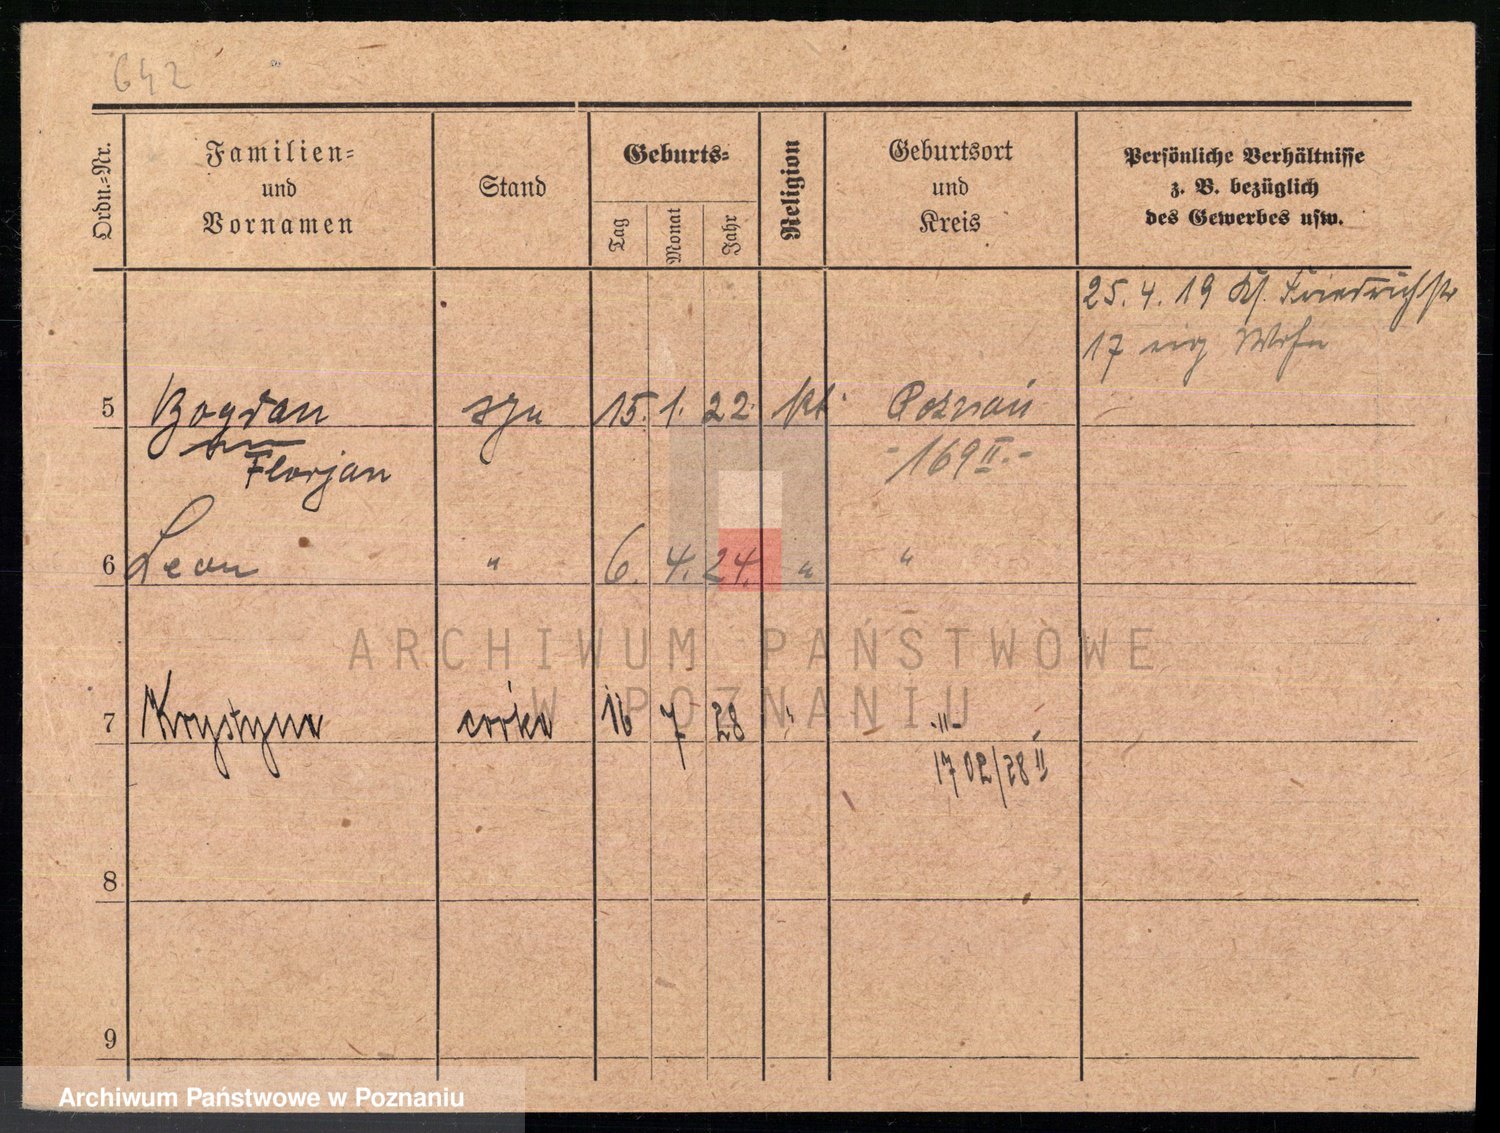 642
Ordn.-Nr.
Familien-
und
Vornamen
Stand
Geburts-
Tag
Monat
Jahr
Religion
Geburtsort
und
Kreis
Persönliche Verhältnisse
z. B. bezüglich
des Gewerbes usw.
25. 4. 19 Kl. Friedrichstr
17
5 Bogdan syn 15. 1. 22. kt. Poznań
Florjan -169 II.-
6 Leon " 6. 4. 24. " "
ARCHIWUM PAŃSTWOWE
W POZNANIU
7 Krystyna córka 16 7 28 " -"-
1702/28 II
8
9
Archiwum Państwowe w Poznaniu